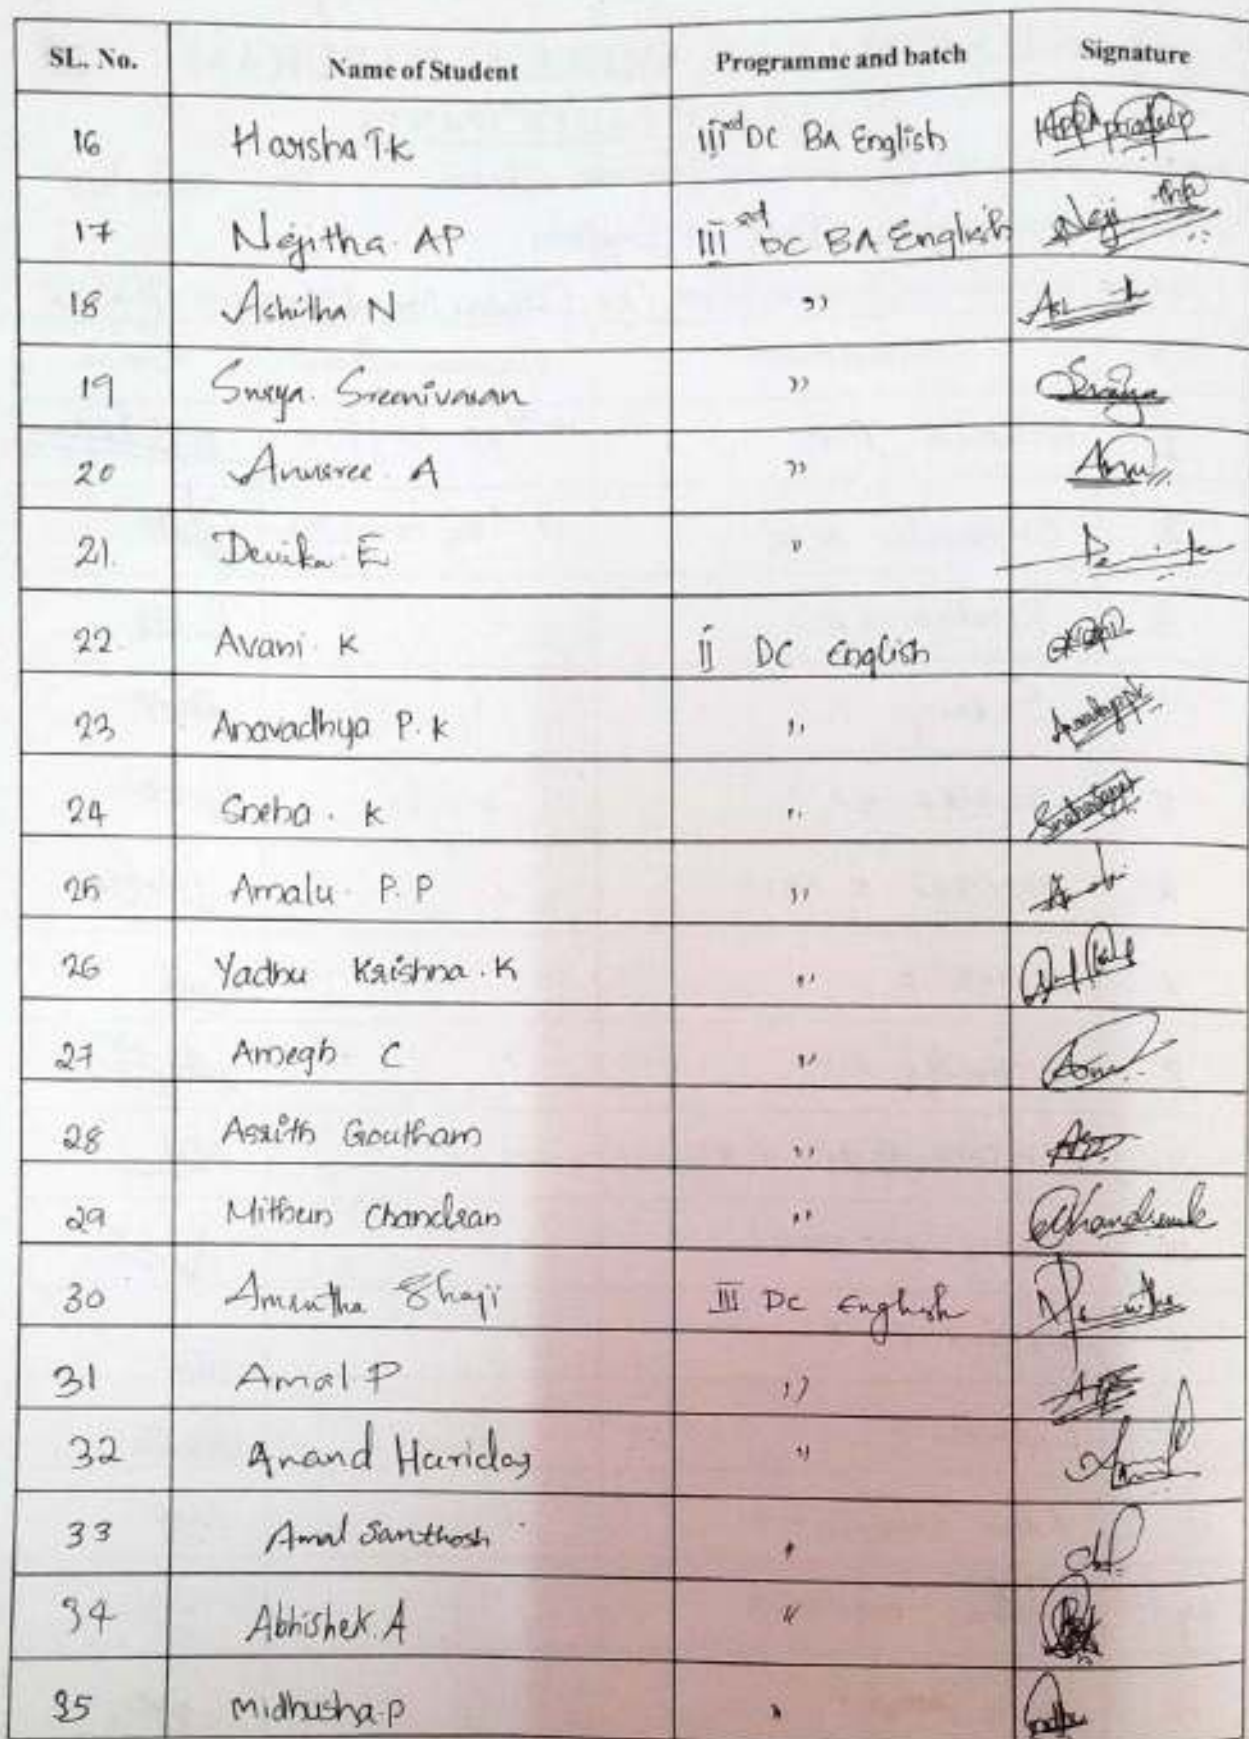 SL. No. Name of Student Programme and batch Signature
16 Harsha T.k III rd DC BA English
17 Nejitha. AP III rd DC BA English
18 Ashitha N ,,
19 Surya. Sreenivasan ,,
20 Anusree. A ,,
21. Devika. E ,,
22. Avani. K II DC English
23 Anavadhya P. k ,,
24 Sneha. K ,,
25 Amalu. P. P ,,
26 Yadhu Krishna. K ,,
27 Amegh C ,,
28 Asrith Goutham ,,
29 Mithun Chandran ,,
30 Amrutha Shaji III DC English
31 Amal P ,,
32 Anand Haridas ,,
33 Amal Santhosh ,,
34 Abhishek. A ,,
35 Midhusha. P ,,